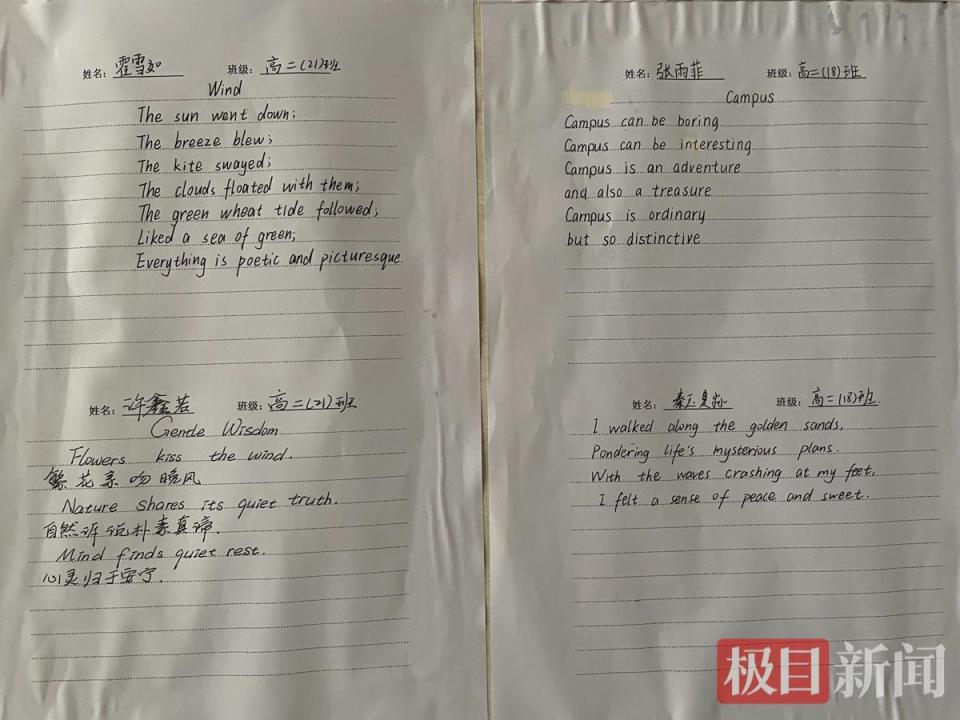 姓名: 霍雪如 班级: 高二(21)班
Wind
The sun went down;
The breeze blew;
The kite swayed;
The clouds floated with them;
The green wheat tide followed;
Liked a sea of green;
Everything is poetic and picturesque.
姓名: 许鑫若 班级: 高二(21)班
Gentle Wisdom
Flowers kiss the wind.
繁花亲吻晚风
Nature shares its quiet truth.
自然诉说朴素真谛.
Mind finds quiet rest.
心灵归于安宁.
姓名: 张雨菲 班级: 高二(18)班
Campus
Campus can be boring
Campus can be interesting
Campus is an adventure
and also a treasure
Campus is ordinary
but so distinctive
姓名: 班级: 高二(18)班
I walked along the golden sands,
Pondering life's mysterious plans.
With the waves crashing at my feet,
I felt a sense of peace and sweet.
极目新闻